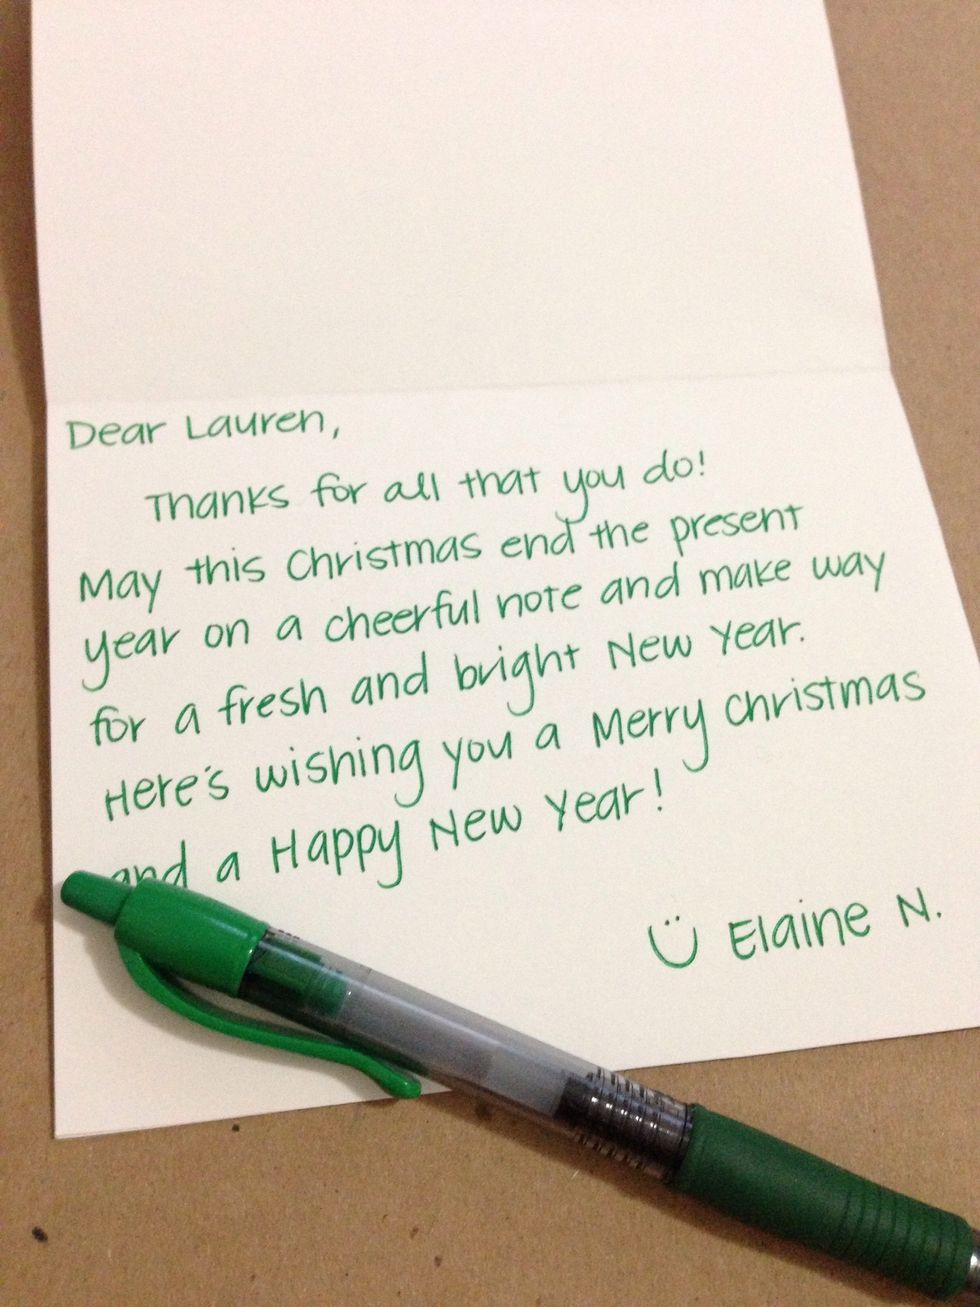 Dear Lauren,
Thanks for all that you do!
May this Christmas end the present
year on a cheerful note and make way
for a fresh and bright New Year.
Here's wishing you a Merry Christmas
and a Happy New Year!
Elaine N.